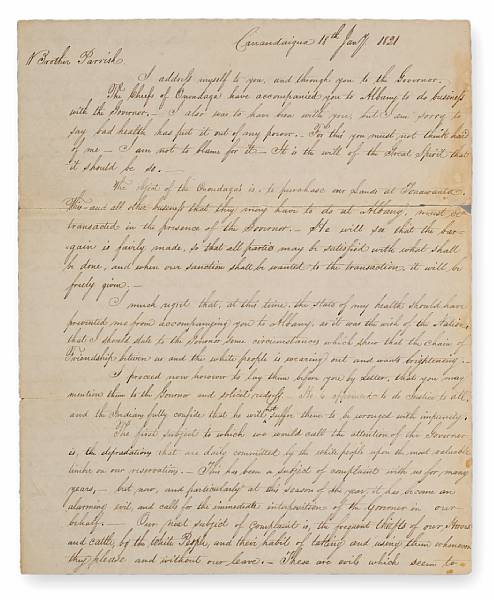 Canandaigua 18th Jany. 1821
Brother Parrish
I address myself to you, and through you to the Governor.
The Chiefs of Onondaga have accompanied you to Albany to do business
with the Governor. – I also was to have been with you, but I am sorry to
say bad health has put it out of my power. – For this you must not think hard
of me – I am not to blame for it – It is the will of the Great Spirit that
it should be so. –
The object of the Onondagas is, to purchase our Lands at Tonawanta.
This and all other business that they may have to do at Albany, must be
transacted in the presence of the Governor – He will see that the bar-
gain is fairly made, so that all parties may be satisfied with what shall
be done, and when our sanction shall be wanted to the transaction, it will be
freely given. –
I much regret that, at this time, the state of my health should have
prevented me from accompanying you to Albany, as it was the wish of the Nation,
that I should state to the Governor some circumstances which shew that the chain of
Friendship between us and the white people is wearing out and wants brightening. –
I proceed now however to lay them before you by Letter, that you may
mention them to the Governor and solicit redress. He is to do Justice to all,
and the Indians fully confide that he will not suffer them to be wronged with impunity.
The first subject to which we would call the attention of the Governor
is, the depradations that are daily committed by the white people upon the most valuable
timber on our reservations. – This has been a subject of complaint with us for many
years, – but now, and particularly at this season of the year, it has become an
alarming evil, and calls for the immediate interposition of the Governor in our
behalf. – Our next subject of Complaint is, the frequent thefts of our Horses
and cattle, by the White People, and their habit of taking and using them whenever
they please and without our leave. – These are evils which seem to